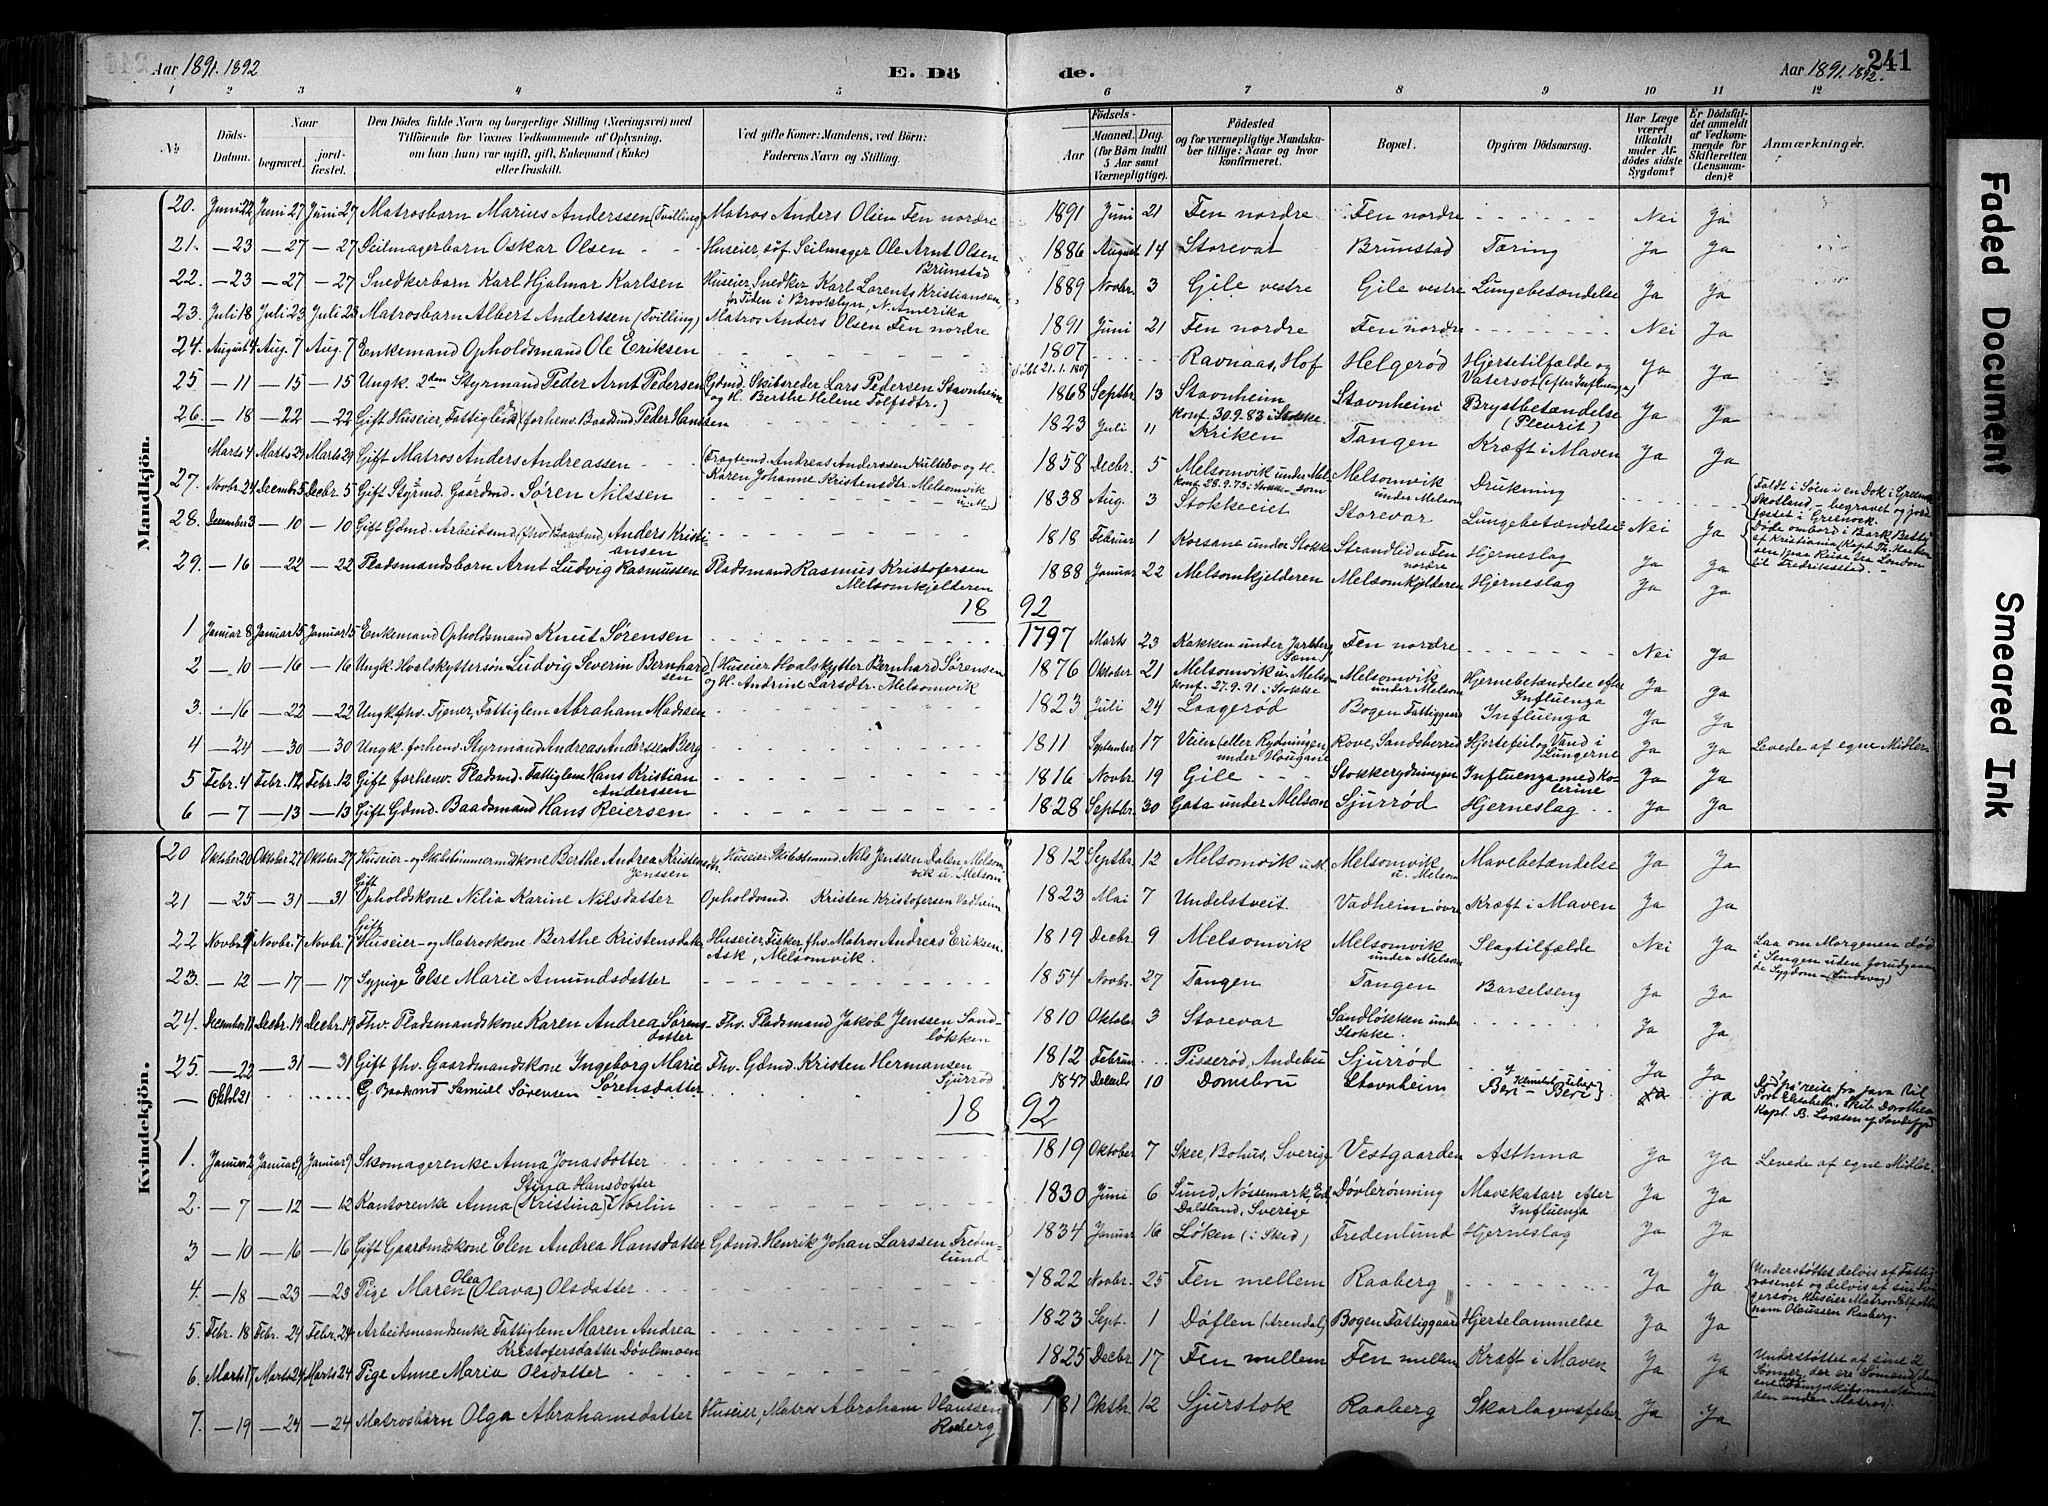 Aar 1891. 1892
E. Dö
de.
Aar 1891. 1892.
241
1 2 3 4 5 6 7 8 9 10 11 12
No
Döds-Datum.
Naar
begravet.
jord-fæstet.
Den Dödes fulde Navn og borgerlige Stilling (Næringsvei) med
Tilföiende for Voxnes Vedkommende af Oplysning,
om han (hun) var ugift, gift, Enkemand (Enke)
eller fraskilt.
Ved gifte Koner: Mandens, ved Börn:
Faderens Navn og Stilling.
Födsels-
Aar
Maaned. Dag.
(for Börn indtil
5 Aar samt
Værnepligtige).
Födested
og for værnepligtige Mandska-
ber tillige: Naar og hvor
konfirmeret.
Bopæl.
Opgiven Dödsaarsag.
Har Læge
været
tilkaldt
under Af-
dödes sidste
Sygdom?
Er Dödsfal-
det anmeldt
af Vedkom-
mende for
Skifteretten
(Lensman-
den)?
Anmærkninger.
Mandkjön.
20. Juni 22 Juni 27 Juni 27 Matrosbarn Marius Anderssen (Tvilling) Matros Anders Olsen Fen nordre 1891 Juni 21 Fen nordre Fen nordre Nei Ja
21. — 23 — 27 — 27 Seilmagerbarn Oskar Olsen Huseier, söf. Seilmager Ole Arnt Olsen Brunstad 1886 August 14 Storevar Brunstad Tæring Ja Ja
22. — 23 — 27 — 27 Snedkerbarn Karl Hjalmar Karlsen Huseier, Snedker Karl Lorents Kristiansen, for Tiden i Brooklyn, N. Amerika 1889 Novbr. 3 Gile vestre Gile vestre Lungebetændelse Ja Ja
23. Juli 18 Juli 23 Juli 23 Matrosbarn Albert Anderssen (Tvilling) Matros Anders Olsen Fen nordre 1891 Juni 21 Fen nordre Fen nordre Nei Ja
24. August 4 Aug. 7 Aug. 7 Enkemand Opholdsmand Ole Eriksen 1807 Döbt 21.1.1807 Ravnaas, Hof Helgeröd Hjertetilfælde og Vatersot (efter Influenza) Ja Ja
25 — 11 — 15 — 15 Ungk. 2den Styrmand Peder Arnt Pedersen Gdmd. Skibsreder Lars Pedersen Stavnheim og H. Berthe Helene Tolfsdtr. 1868 Septbr. 13 Stavnheim Konf. 30.9.83 i Stokke Stavnheim Brystbetændelse (Pleurit) Ja Ja
26. — 18 — 22 — 22 Gift Huseier, Fattiglem, (forhenv. Baadsmd.) Peder Hanssen 1823 Juli 11 Kriken Tangen Kræft i Maven Ja Ja
Marts 4 Marts 29 Marts 29 Gift Matros Anders Andreassen Fragtemd. Andreas Anderssen Kultebo og H. Karen Johanne Kristensdtr. Melsomvik 1858 Decbr. 5 Melsomvik under Mel. Konf. 28.9.73 i Stokke Melsomvik under Melsom Drukning
27. Novbr. 24 Decembr. 5 Decbr. 5 Gift Styrmd. Gaardmd. Sören Nilssen 1838 Aug. 3 Stokkeeiet Storevar Lungebetændelse
Faldt i Söen i en Dok i Greenock, Skotland, – begravet og jordfæstet i Greenock.
28. December 3 — 10 — 10 Gift Gdmd. Arbeidsmd. (fhv. Baadsmd.) Anders Kristiansen 1818 Februar 1 Korsane under Stokke Strandlid u. Fen nordre Hjerneslag Nei Ja
Döde ombord i Bark "Betty" af Kristiania, paa Reise fra London til Fredriksstad.
29. — 16 — 22 — 22 Pladsmandsbarn Arnt Ludvig Rasmussen Pladsmand Rasmus Kristofersen Melsomkjelderen 1888 Januar 22 Melsomkjelderen Melsomkjelderen Hjerneslag Ja Ja
18 92
1 Januar 8 Januar 15 Januar 15 Enkemand Opholdsmand Knut Sörensen 1797 Marts 23 Kakken under Jarlsberg (Sem) Fen nordre Nei Ja
2 — 10 — 16 — 16 Ungk. Hvalskyttersön Ludvig Severin Bernhardsen (Huseier Hvalskytter Bernhard Sörensen og H. Andrine Larsdtr. Melsomvik 1876 Oktober 21 Melsomvik u. Melsom Konf. 27.9.91 i Stokke Melsomvik under Melsom Hjernebetændelse efter Influenza Ja Ja
3. — 16 — 22 — 22 Ungk. fhv. Tjener, Fattiglem Abraham Madssen 1823 Juli 24 Laageröd Bogen Fattiggaard Influenza Ja Ja
4 — 24 — 30 — 30 Ungk. forhenv. Styrmand Andreas Anderssen Berg 1811 September 17 Veien (eller Rydningen) under Hougane Rove, Sandeherred Hjertefeil og Vand i Lungerne Ja Ja Levede af egne Midler.
5 Febr. 4 Febr. 12 Febr. 12 Gift forhenv. Pladsmd. Fattiglem Hans Kristian Anderssen 1816 Novbr. 19 Gile Stokkerydningen Influenza med Kolerine Ja Ja
6 — 7 — 13 — 13 Gift Gdmd. Baadsmand Hans Reiersen 1828 Septbr. 30 Gata under Melsom Sjurröd Hjerneslag Ja Ja
Kvindekjön.
20 Oktober 20 Oktober 27 Oktober 27 Huseier- og Skibstömmermdskone Berthe Andrea Kristensdtr. Jenssen Huseier Skibstömmd. Nils Jenssen Dalen, Melsomvik u. Melsom 1812 Septbr. 12 Melsomvik u. M. Melsomvik u. Melsom Mavebetændelse Ja Ja
21 — 25 — 31 — 31 Gift Opholdskone Nilia Karine Nilsdatter Opholdsmd. Kristen Kristofersen Vadheim 1823 Mai 7 Undelstveit Vadheim övre Kræft i Maven Ja Ja
22 Novbr. 1 Novbr. 7 Novbr. 7 Gift Huseier- og Matroskone Berthe Kristensdatter Huseier, Fisker, fhv. Matros Andreas Eriksen Ask, Melsomvik. 1819 Decbr. 9 Melsomvik Melsomvik under Melsom Slagtilfælde Nei Ja
Laa om Morgenen död i Sengen uden forudgaaende Sygdom
23. — 12 — 17 — 17 Sypige Else Marie Amundsdatter 1854 Novbr. 27 Tangen Tangen Barselseng Ja Ja
24. December 11 Decbr. 19 Decbr. 19 Fhv. Pladsmandskone Karen Andrea Sörensdatter Fhv. Pladsmand Jakob Jenssen Sandlökken 1810 Oktober 3 Storevar Sandlökken under Stokke Ja Ja
25. — 22 — 31 — 31 Gift fhv. Gaardmandskone Ingeborg Marie Sörensdatter Fhv. Gdmd. Kristen Hermansen Sjurröd 1812 Februar Pisseröd, Andebu Sjurröd Ja Ja
— Oktol 21 G. Baadsmd Samuel Sörensen 1847 Decebr. 10 Domsbru Stavnheim Beri-Beri Ja Ja
Död på reise fra Java til Port Elisabeth i Skib Dorothea Kapt. B. Larssen af Sandefjord
18 92
1. Januar 2 Januar 9 Januar 9 Skomagerenke Anna Jonasdotter 1819 Oktober 7 Skee, Bohus, Sverige Vestgaarden Asthma Ja Ja Levede af egne Midler.
2. — 7 — 12 — 12 Kantorenke Anna (Kristina) Stina Hansdotter Norlin 1830 Juni 6 Sund, Nössemark, Dalsland, Sverige Dövlerönning Mavekatarr efter Influenza Ja Ja
3 — 10 — 16 — 16 Gift Gaardmdskone Elen Andrea Hansdatter Gdmd. Henrik Johan Larssen Fredenlund 1834 Januar 16 Löken (i Sked) Fredenlund Hjerneslag Ja Ja
4. — 18 — 23 — 23 Pige Maren Olea (Olava) Olsdatter 1822 Novbr. 25 Fen mellem Raaberg Ja Ja
Understöttet delvis af Fattigvæsenet og delvis af sin Svigersön Huseier Matros Olaussen Raaberg.
5. Febr. 18 Febr. 24 Febr. 24 Arbeidsmandsenke Fattiglem Maren Andrea Kristofersdatter Dövlemoen 1823 Sept. 1 Döflen (Arendal) Bogen Fattiggaard Hjertelammelse Ja Ja
6. Marts 17 Marts 24 Marts 24 Pige Anne Maria Olsdatter 1825 Decbr. 17 Fen mellem Fen mellem Kræft i Maven Ja Ja
Understöttet af sine 2 Sönner, der ere Sömænd
7. — 19 — 24 — 24 Matrosbarn Olga Abrahamsdatter Huseier, Matros Abraham Olaussen Raaberg Oktbr. 12 Sjurstok Raaberg Skarlagensfeber Ja Ja
Faded Document
Smeared Ink